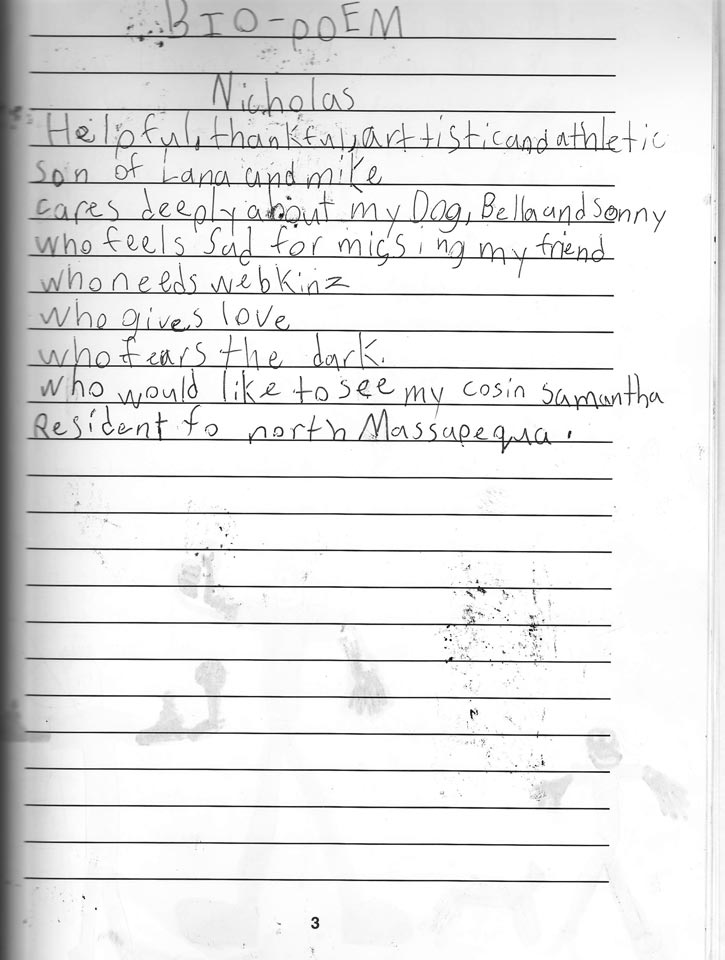 BIO-POEM
Nicholas
Helpful, thankful, arttistic and athletic
son of Lana and mike
cares deeply about my Dog, Bella and Sonny
who feels sad for missing my friend
who needs webkinz
who gives love
who fears the dark.
who would like to see my cosin samantha
Resident fo north Massapequa.
3